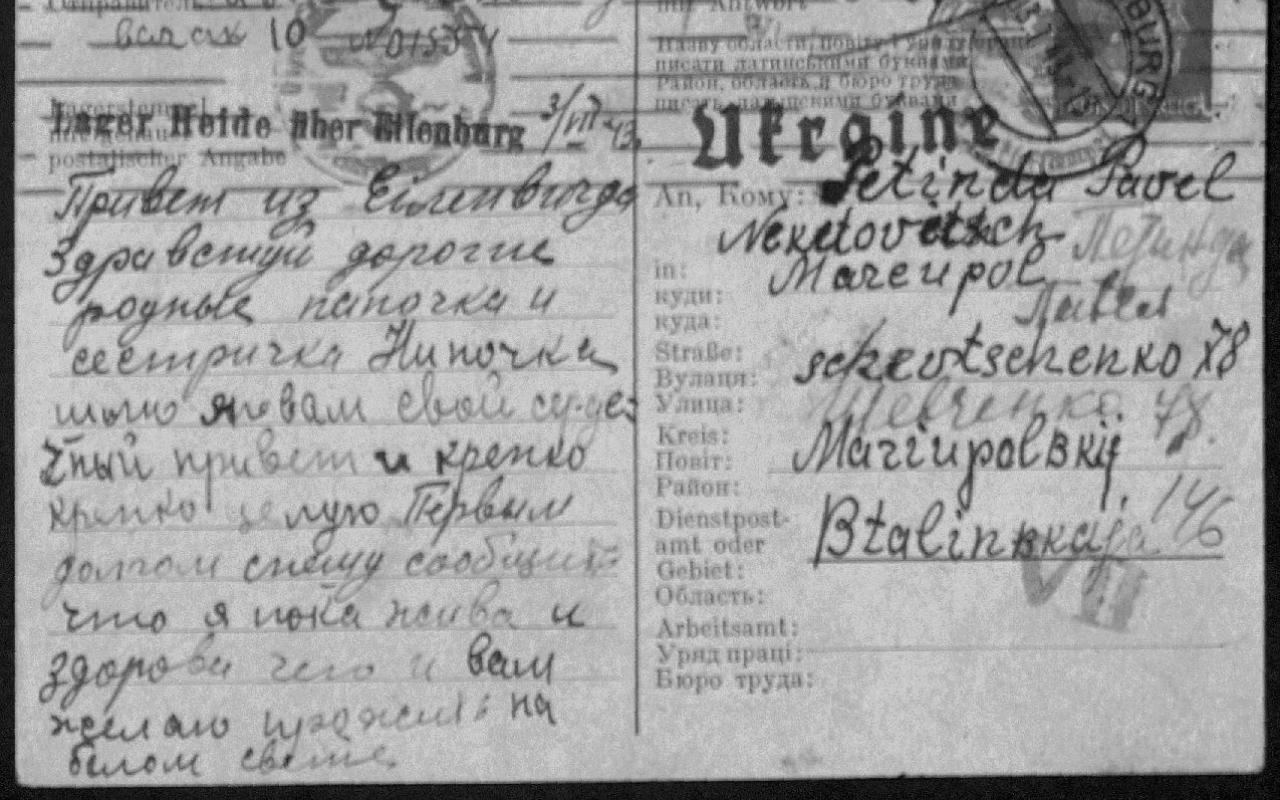 барак 10
Lagerstempel
postalischer Angabe
Lager Heide über Eilenburg 3/VII-43
Привет из Eilenburga
Здравствуй дорогие
родные папочка и
сестричка Ниночка
шлю я вам свой серде-
чный привет и крепко
крепко целую Первым
долгом спешу сообщить
что я пока жива и
здорова чего и вам
желаю прожить на
белом свете.
Antwort
Назву области, повіту і уряду праці
писати латинськими буквами
Район, область и бюро труда
писать латинскими буквами
BURG
Ukraine
An, Кому: Petinda Pavel
Neketovetsch Петинда
in: Mareupol
куди: Павел
куда:
Straße: schevtschenko 78
Вулаця:
Улица: Шевченко 78.
Kreis: Mariupolвkij
Повіт:
Район:
Dienstpost- 146
amt oder Btalinвkaja
Gebiet:
Область: VII
Arbeitsamt:
Уряд праці:
Бюро труда: